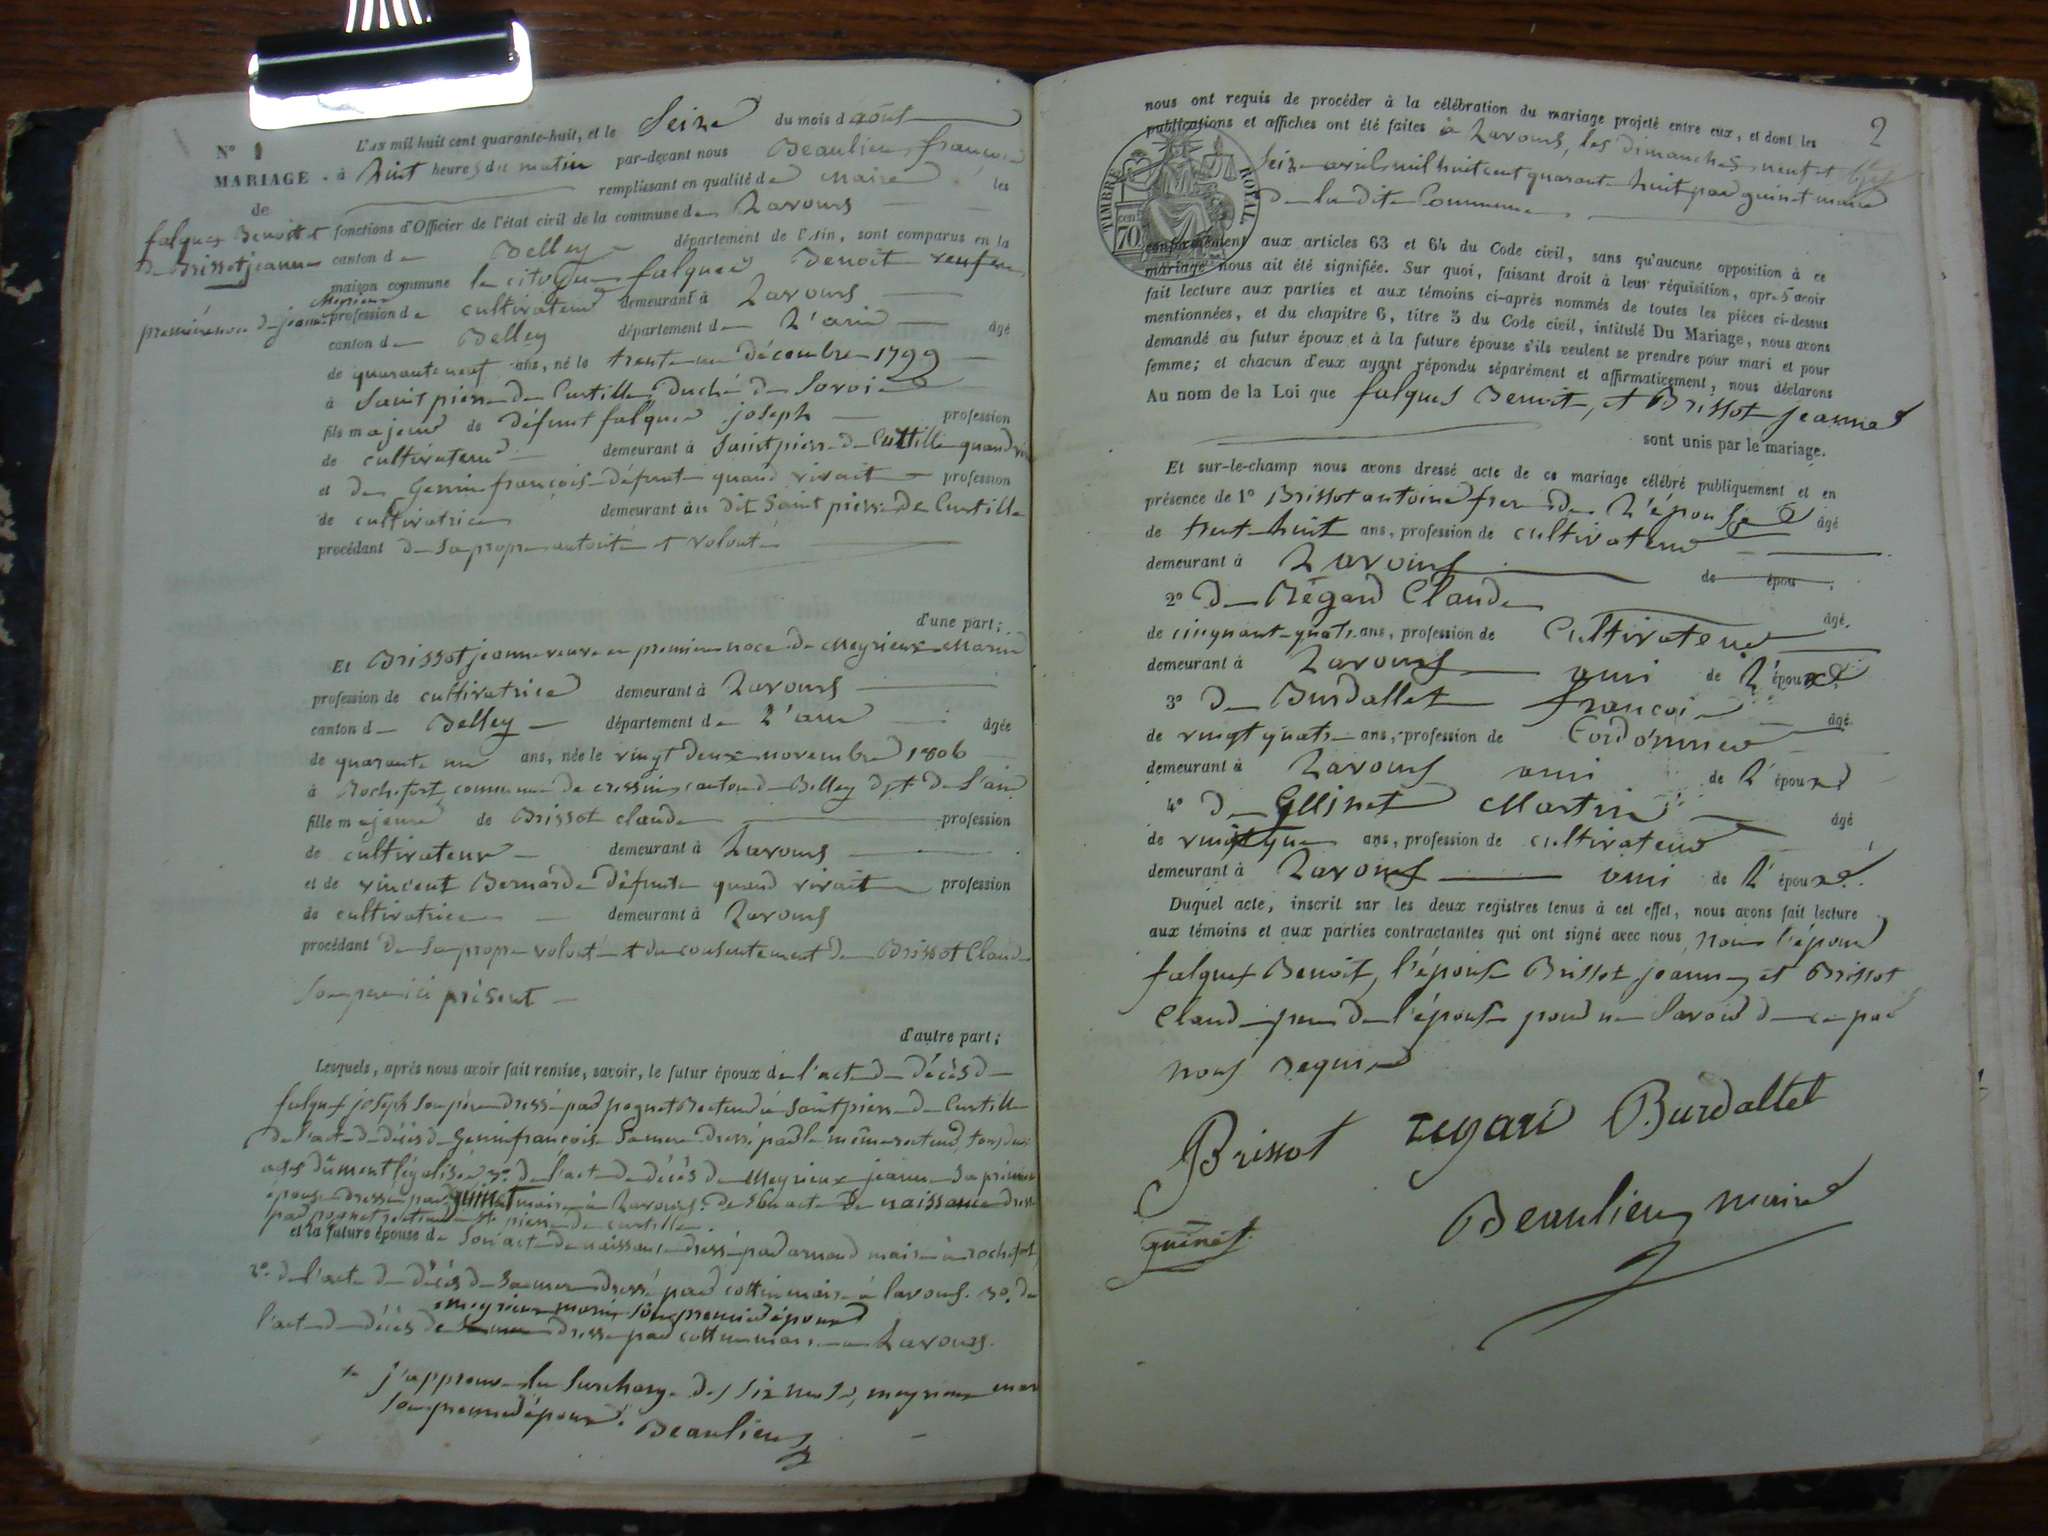 N° 1
MARIAGE
de
falques Benoit et
de Brissot jeanne
Meyrieux
première noce de jeanne
L'AN mil huit cent quarante-huit, et le Seize du mois d'août
à huit heures du matin par-devant nous Beaulieu françois
remplissant en qualité de maire les
fonctions d'Officier de l'état civil de la commune de Lavours
canton de Belley département de l'Ain, sont comparus en la
maison commune le citoyen falques Benoit veuf en
profession de cultivateur demeurant à Lavours
canton de Belley département de L'ain âgé
de quarante neuf ans, né le trente un décembre 1799
à Saint pierre de Curtille, duché de Savoie
fils majeur de défunt falques joseph profession
de cultivateur demeurant à Saint pierre de Curtille quand vi
et de Genin françoise défunte quand vivait profession
de cultivatrice demeurant au dit Saint pierre de Curtille
procédant de sa propre autorité et volonté
d'une part;
Et Brissot jeanne veuve en première noce de Meyrieux Marin
profession de cultivatrice demeurant à Lavours
canton de Belley département de L'ain âgée
de quarante un ans, née le vingt deux novembre 1806
à Rochefort, commune de cressin, canton de Belley dpt de l'ain
fille majeure de Brissot claude profession
de cultivateur demeurant à Lavours
et de vincent Bernarde défunte quand vivait profession
de cultivatrice demeurant à Lavours
procédant de sa propre volonté et du consentement de Brissot Claude
Son pere ici présent
d'autre part;
Lesquels, après nous avoir fait remise, savoir, le futur époux de l'acte de décès de
falques joseph Son père dressé par pognet Recteur à Saint pierre de Curtille
de l'acte de décès de Genin françoise Sa mere dressé par le même recteur, tous deux
actes dûment légalisés, 3° de l'acte de décès de Meyrieux jeanne Sa première
épouse dressé par guinet maire à Lavours. de Son acte de naissance dressé
par pognet recteur St pierre de curtille.
et la future épouse de Son acte de naissance dressé par arnaud maire à rochefort,
2° de l'acte de décès de Sa mere dressé par cottin maire à lavours. 3° de
meyrieux marin Son premier époux
l'acte de décès de Sa mere dressé par cottin maire à Lavours.
j'approuve la Surcharge des Six mots, meyrieux marin
Son premier époux. Beaulieu
2
nous ont requis de procéder à la célébration du mariage projeté entre eux, et dont les
publications et affiches ont été faites à Lavours, les dimanches neuf et
Seize avril mil huit cent quarante huit par guinet maire
de la dite Commune
TIMBRE ROYAL
70 cent
conformément aux articles 63 et 64 du Code civil, sans qu'aucune opposition à ce
mariage nous ait été signifiée. Sur quoi, faisant droit à leur réquisition, après avoir
fait lecture aux parties et aux témoins ci-après nommés de toutes les pièces ci-dessus
mentionnées, et du chapitre 6, titre 5 du Code civil, intitulé Du Mariage, nous avons
demandé au futur époux et à la future épouse s'ils veulent se prendre pour mari et pour
femme; et chacun d'eux ayant répondu séparément et affirmativement, nous déclarons
Au nom de la Loi que falques Benoit, et Brissot jeanne
sont unis par le mariage.
Et sur-le-champ nous avons dressé acte de ce mariage célébré publiquement et en
présence de 1° Brissot antoine frere de L'épouse âgé
de trente huit ans, profession de cultivateur
demeurant à Lavours de épou ;
2° De Régard Claude
âgé
de cinquante quatre ans, profession de Cultivateur
demeurant à Lavours ami de L'époux
3° De Burdallet françois
âgé
de vingt quatre ans, profession de Cordonnier
demeurant à Lavours ami de L'époux
4° De Martin
âgé
de ans, profession de cultivateur
demeurant à Lavours ami de L'époux.
Duquel acte, inscrit sur les deux registres tenus à cet effet, nous avons fait lecture
aux témoins et aux parties contractantes qui ont signé avec nous, non l'époux
falques Benoit, l'épouse Brissot jeanne, et Brissot
Claude pere de l'épouse pour ne Savoir de ce par
nous requis
Brissot regard Burdallet
guinet Beaulieu maire